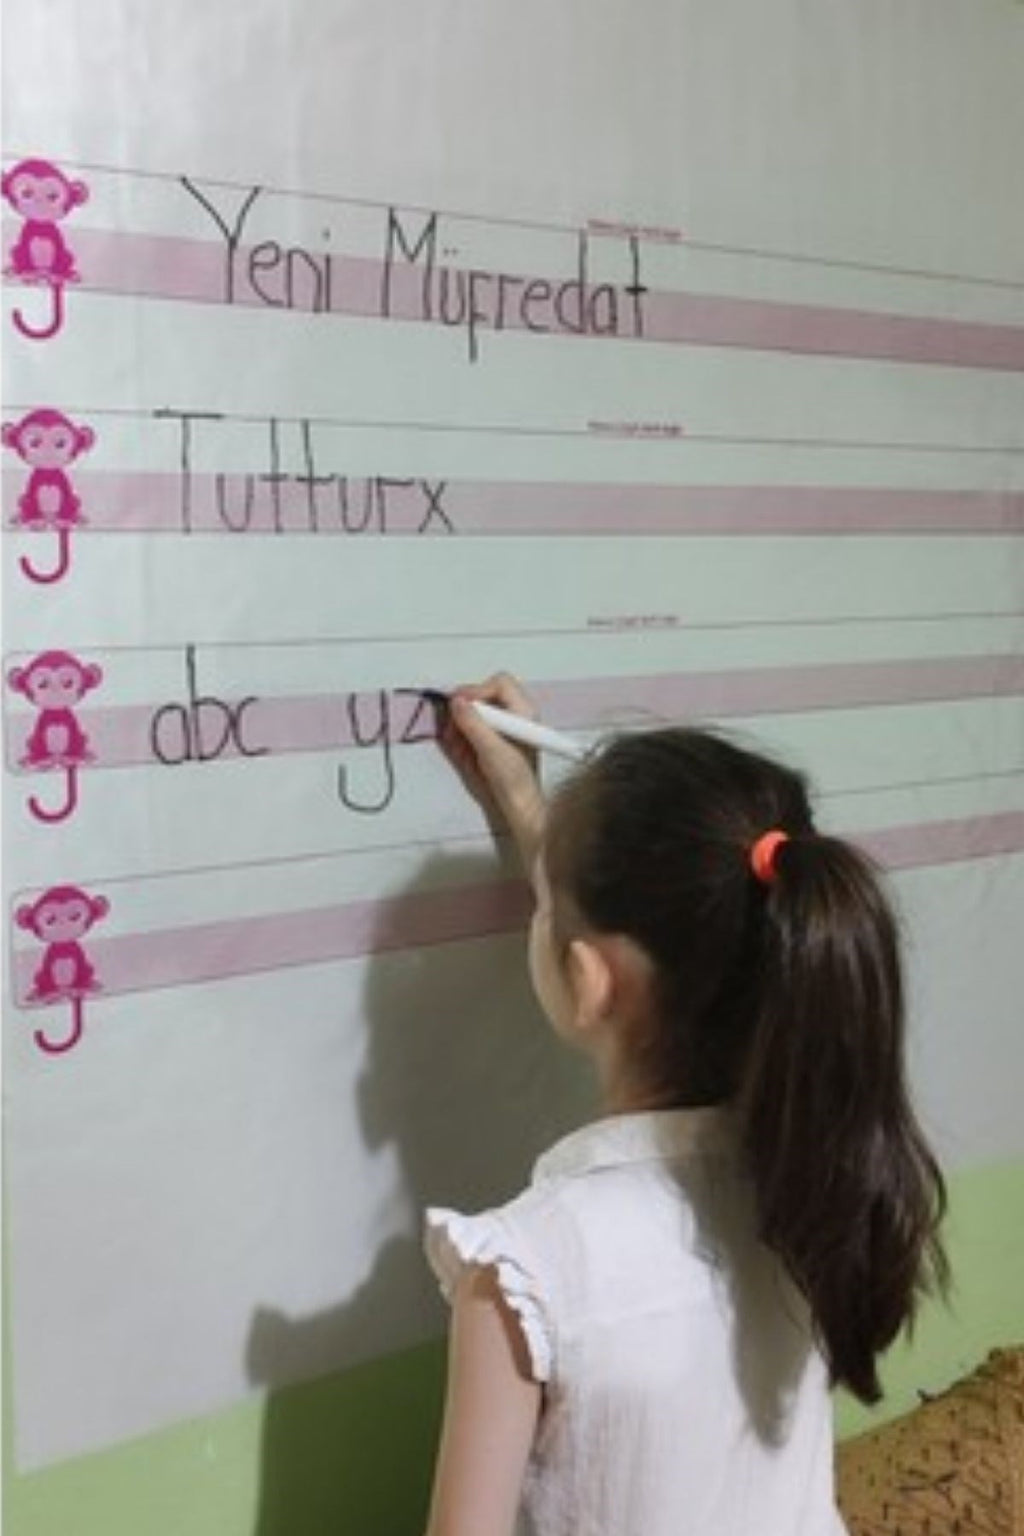 Yeni Müfredat
Tutturx
abc yz